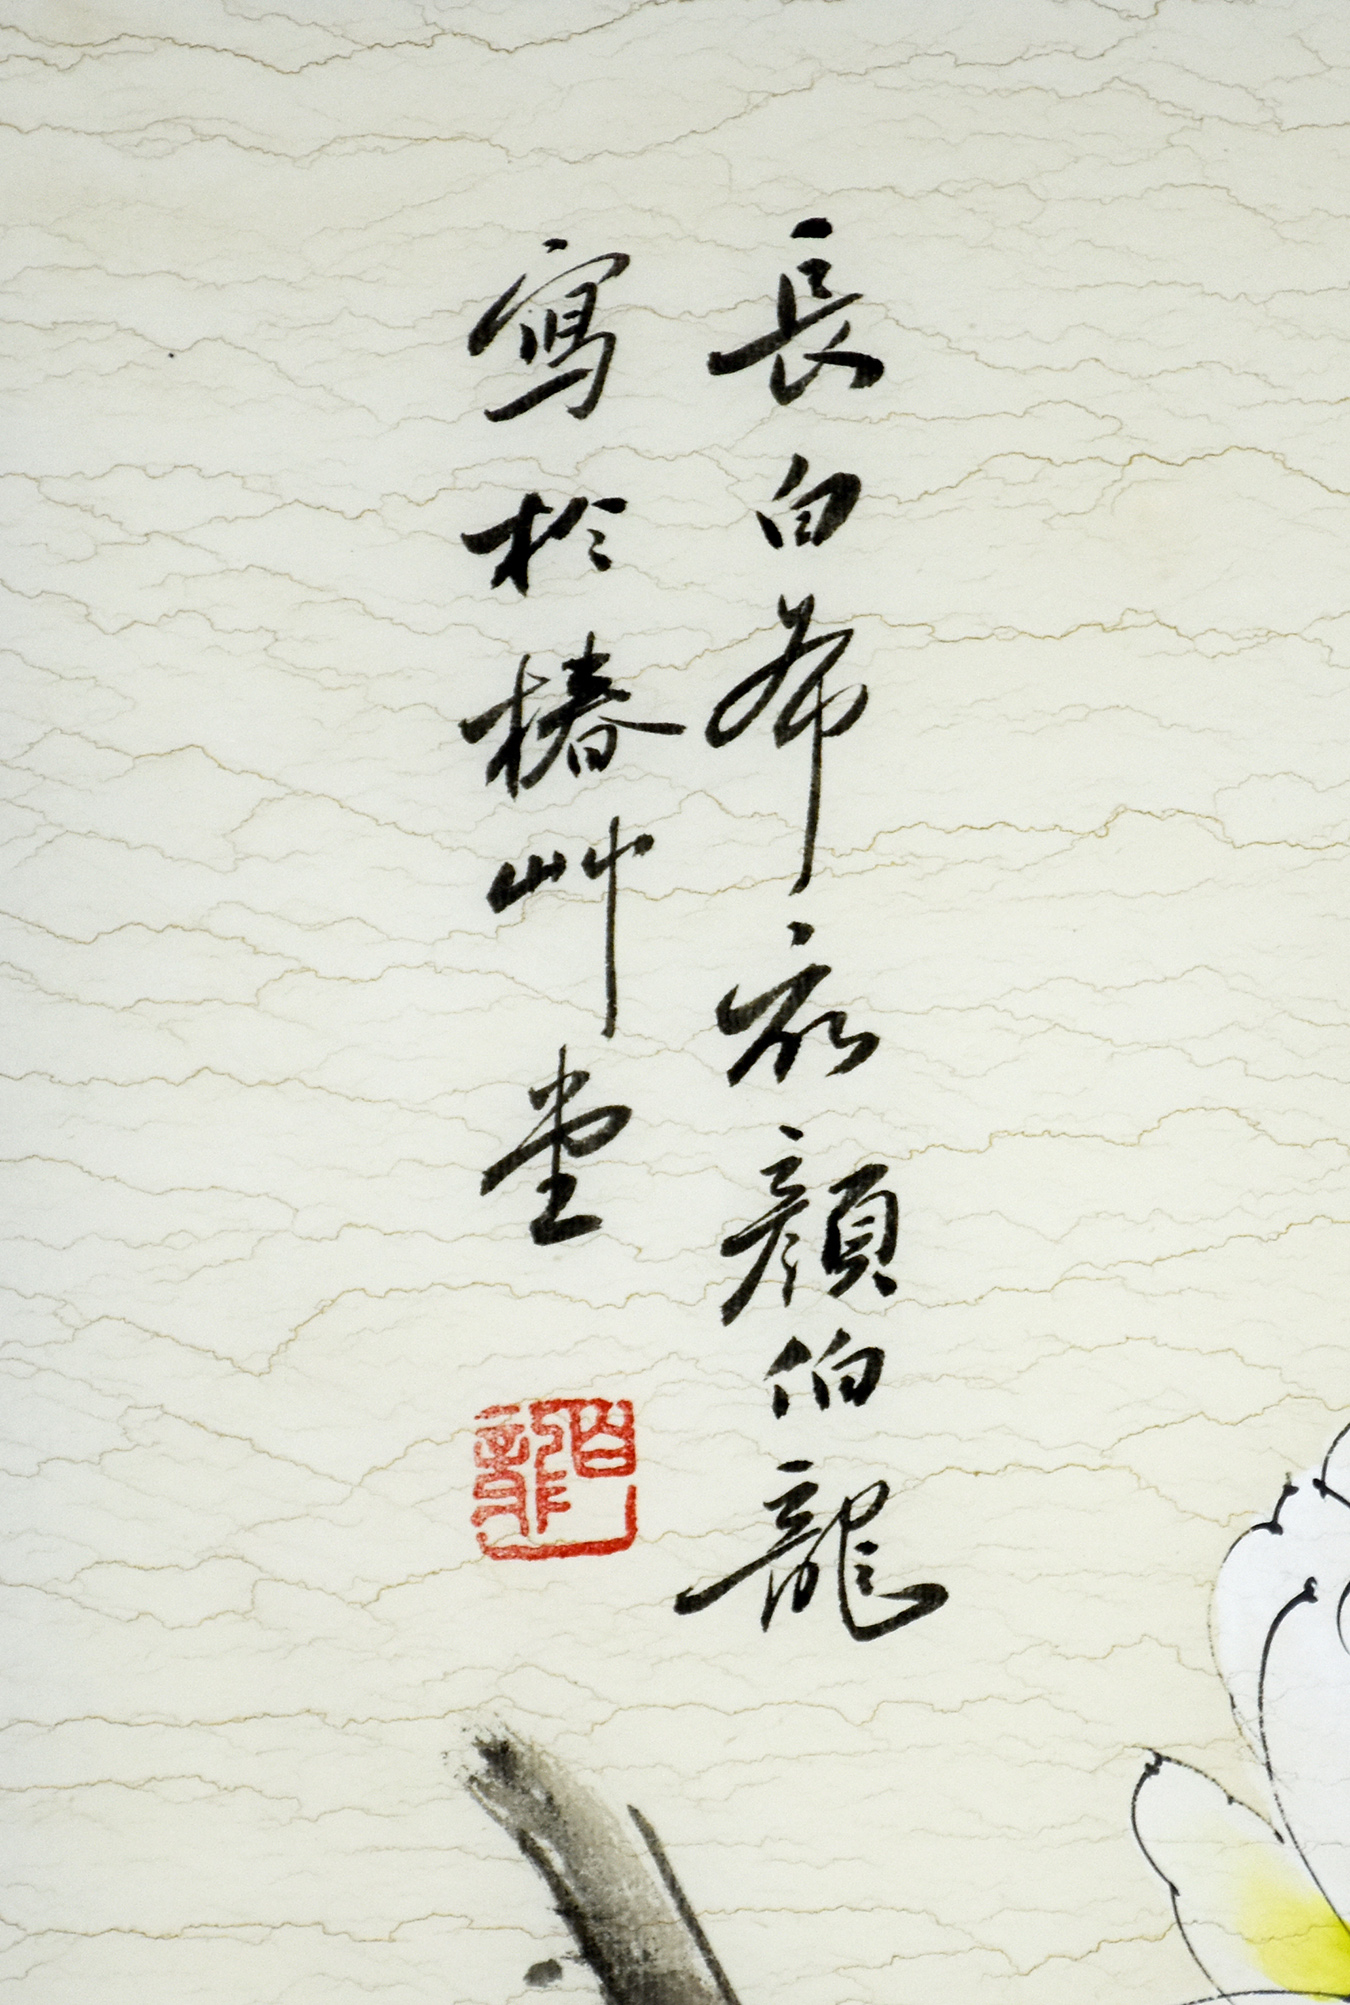 長白布衣顏伯龍
寫於椿艸堂
伯龍